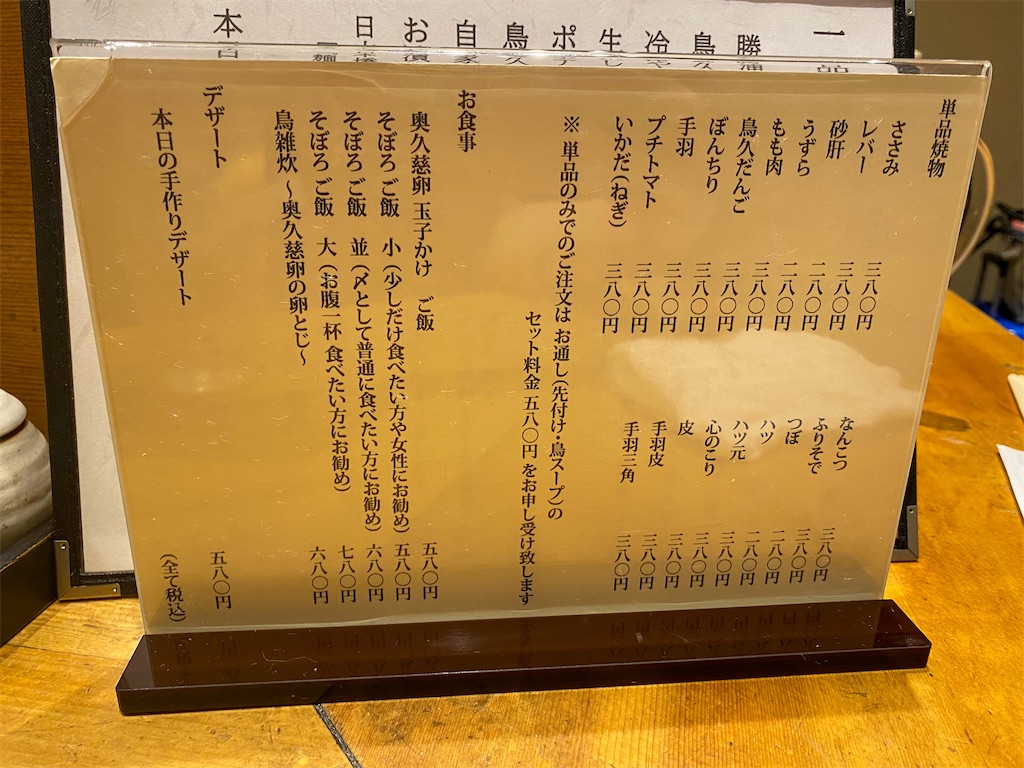 単品焼物
ささみ 三八〇円
レバー 三八〇円
砂肝 二八〇円
うずら 二八〇円
もも肉 三八〇円
鳥久だんご 三八〇円
ぼんちり 三八〇円
手羽 三八〇円
プチトマト 三八〇円
いかだ(ねぎ) 三八〇円
なんこつ 三八〇円
ふりそで 三八〇円
つぼ 二八〇円
ハツ 二八〇円
ハツ元 三八〇円
心のこり 三八〇円
皮 三八〇円
手羽皮 三八〇円
手羽三角 三八〇円
※ 単品のみでのご注文は お通し(先付け・鳥スープ)の
セット料金 五八〇円 をお申し受け致します
お食事
奥久慈卵 玉子かけ ご飯 五八〇円
そぼろ ご飯 小 (少しだけ食べたい方や女性にお勧め) 五八〇円
そぼろ ご飯 並 (〆として普通に食べたい方にお勧め) 六八〇円
そぼろ ご飯 大 (お腹一杯 食べたい方にお勧め) 七八〇円
鳥雑炊 ～奥久慈卵の卵とじ～ 六八〇円
デザート
本日の手作りデザート 五八〇円
(全て税込)